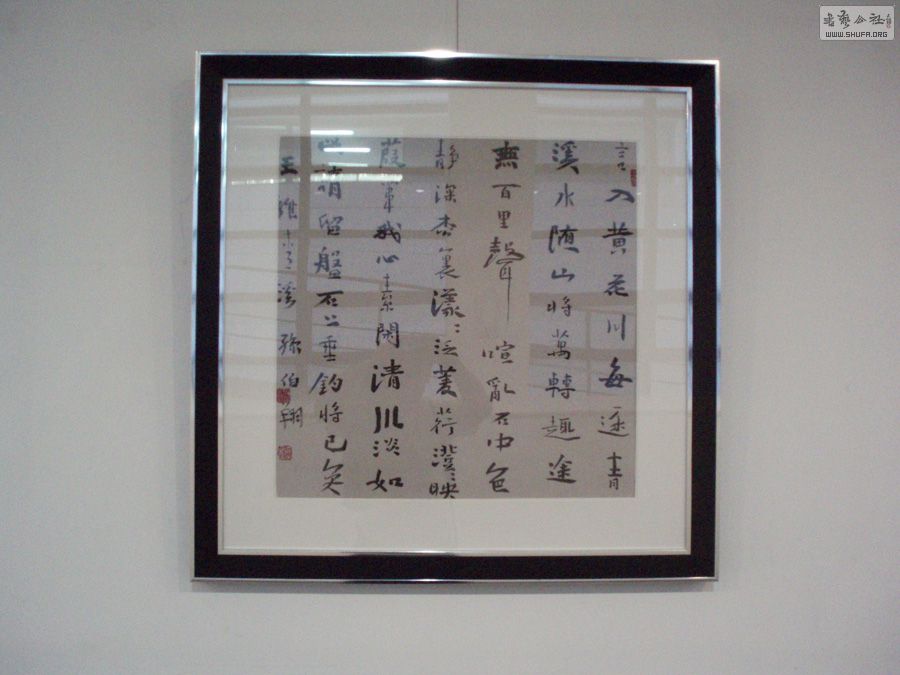 言入黄花川每逐青
溪水随山将萬轉趣途
無百里聲喧亂石中色
靜深枩裏濛〻泛菱荇澄〻映
葭葦我心素閑清川淡如
此請留盤石上垂釣将已矣
王維青溪 孫伯翔
書藝公社
WWW.SHUFA.ORG